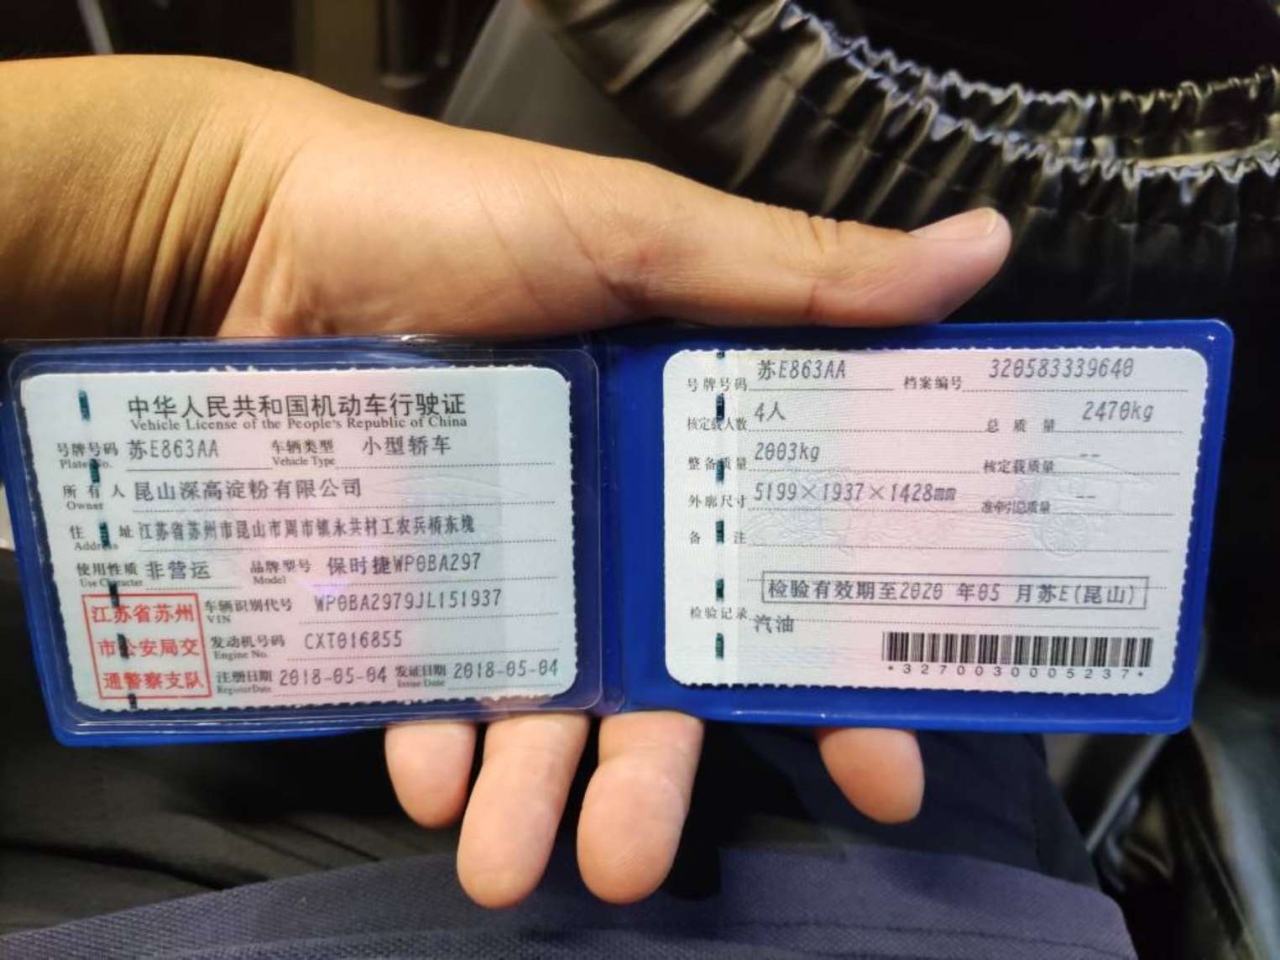 中华人民共和国机动车行驶证
Vehicle License of the People's Republic of China
号牌号码 苏E863AA 车辆类型 小型轿车
Plate No. Vehicle Type
所有人 昆山深高淀粉有限公司
Owner
住址 江苏省苏州市昆山市周市镇永共村工农兵桥东堍
Address
使用性质 非营运 品牌型号 保时捷WP0BA297
Use Character Model
江苏省苏州
市公安局交
通警察支队
车辆识别代号 WP0BA2979JL151937
VIN
发动机号码 CXT016855
Engine No.
注册日期 2018-05-04 发证日期 2018-05-04
Register Date Issue Date
号牌号码 苏E863AA 档案编号 320583339640
核定载人数 4人 总质量 2470kg
整备质量 2003kg 核定载质量 --
外廓尺寸 5199×1937×1428mm 准牵引总质量 --
备注
检验有效期至2020 年05 月苏E(昆山)
检验记录 汽油
*3270030005237*